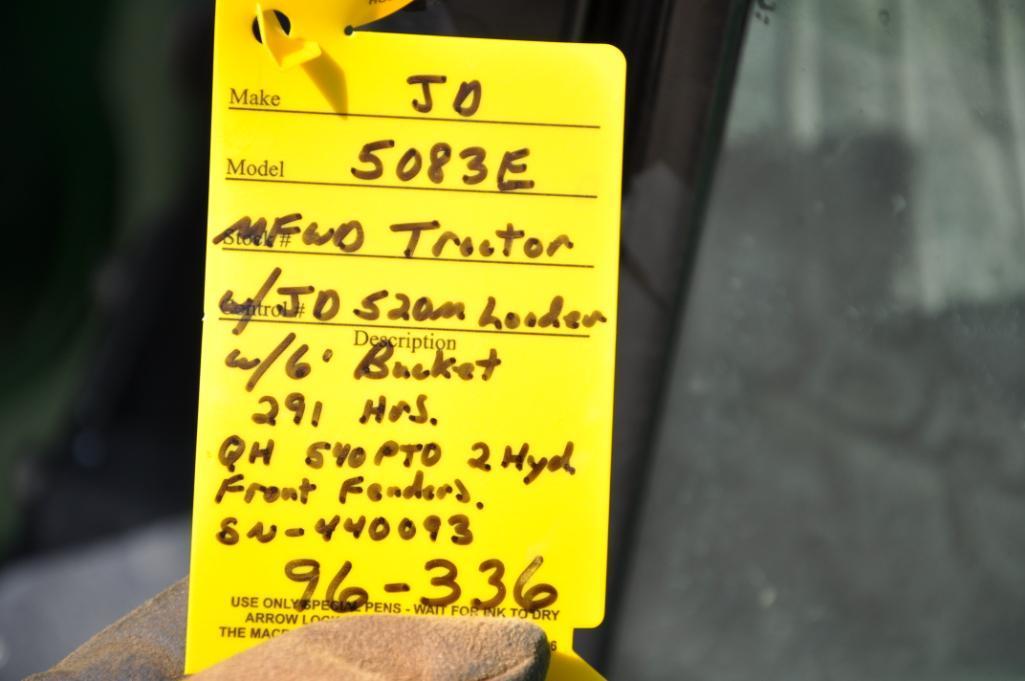 Make JD
Model 5083E
Stock # MFWD Tractor
Control # w/JD 520m Loader
Description
w/6' Bucket
291 Hrs.
QH 540PTO 2 Hyd
Front Fenders.
SN-440093
96-336
USE ONLY SPECIAL PENS - WAIT FOR INK TO DRY
ARROW
THE